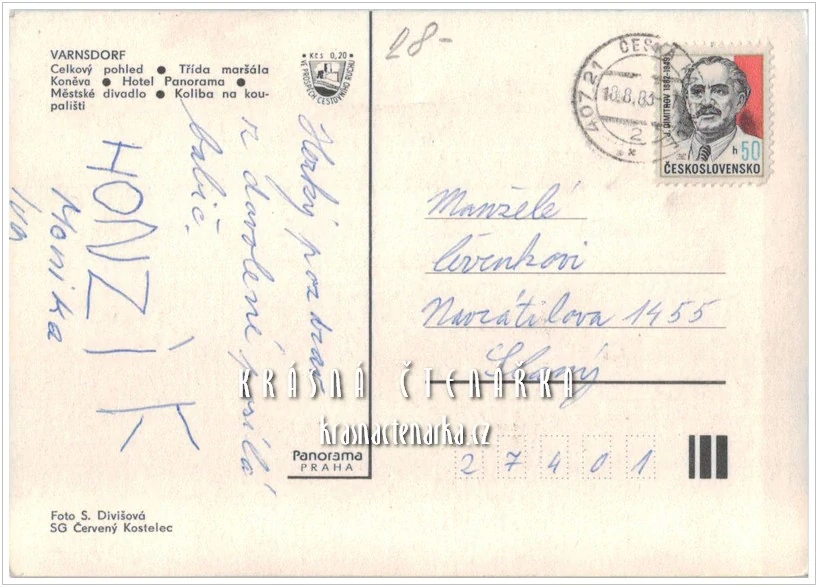 VARNSDORF
Celkový pohled ● Třída maršála
Koněva ● Hotel Panorama ●
Městské divadlo ● Koliba na kou-
pališti
Kčs 0,20
VE PROSPĚCH CESTOVNÍHO RUCHU
28-
407 21 ČESKÁ
18.8.83
2
**
G. DIMITROV 1882-1949
h 50
ČESKOSLOVENSKO
Horký pozdrav
z dovolené posílá
babič.
HONZÍK
Monika
Manželé
Navrátilova 1455
Slaný
27401
KRÁSNÁ ČTENÁŘKA
krasnactenarka.cz
Panorama
PRAHA
Foto S. Divišová
SG Červený Kostelec